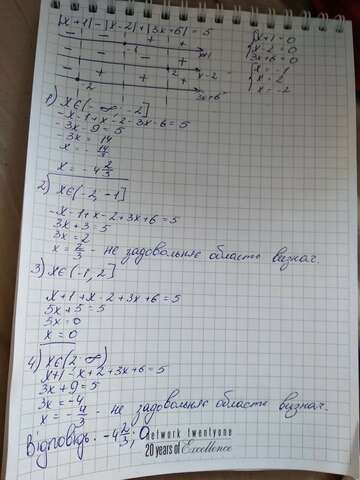 |x+1|-|x-2|+|3x+6|=5
{x+1=0
x-2=0
3x+6=0
- - + +
-1 x+1
- - - +
2 x-2
- + + +
-2 3x+6
{x=-1
x=2
x=-2
1) x∈(-∞; -2]
-x-1+x-2-3x-6=5
-3x-9=5
-3x=14
x=-14/3
x=-4 2/3
2) x∈(-2; -1]
-x-1+x-2+3x+6=5
3x+3=5
3x=2
x=2/3 - не задовольняє области визнач.
3) x∈(-1, 2]
x+1+x-2+3x+6=5
5x+5=5
5x=0
x=0
4) x∈(2; ∞)
x+1-x+2+3x+6=5
3x+9=5
3x=-4
x=-4/3 - не задовольняє области визнач.
Відповідь: -4 2/3; 0
network twentyone
20 years of Excellence